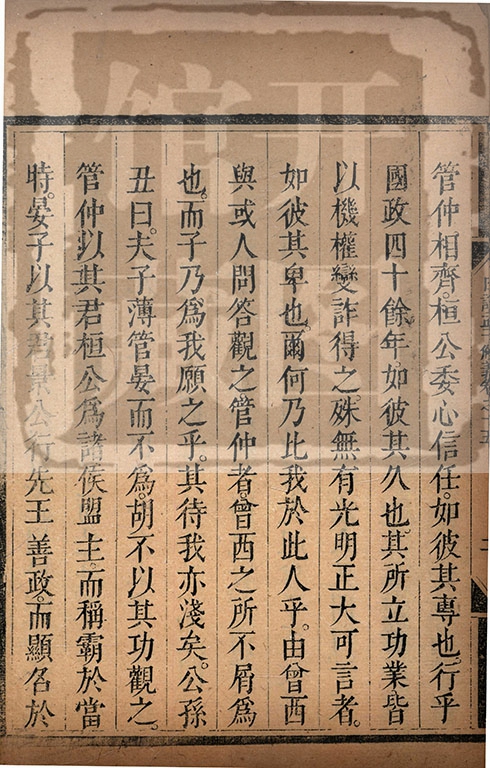 管仲相齊。桓公委心信任。如彼其專也。行乎
國政四十餘年如彼其久也其所立功業皆
以機權變詐得之。殊無有光明正大可言者。
如彼其卑也。爾何乃比我於此人乎。由曾西
與或人問答觀之管仲者。曾西之所不屑爲
也。而子乃爲我願之乎。其待我亦淺矣。公孫
丑曰。夫子薄管晏而不爲。胡不以其功觀之。
管仲以其君桓公爲諸侯盟主。而稱霸於當
時。晏子以其君景公行先王善政。而顯名於